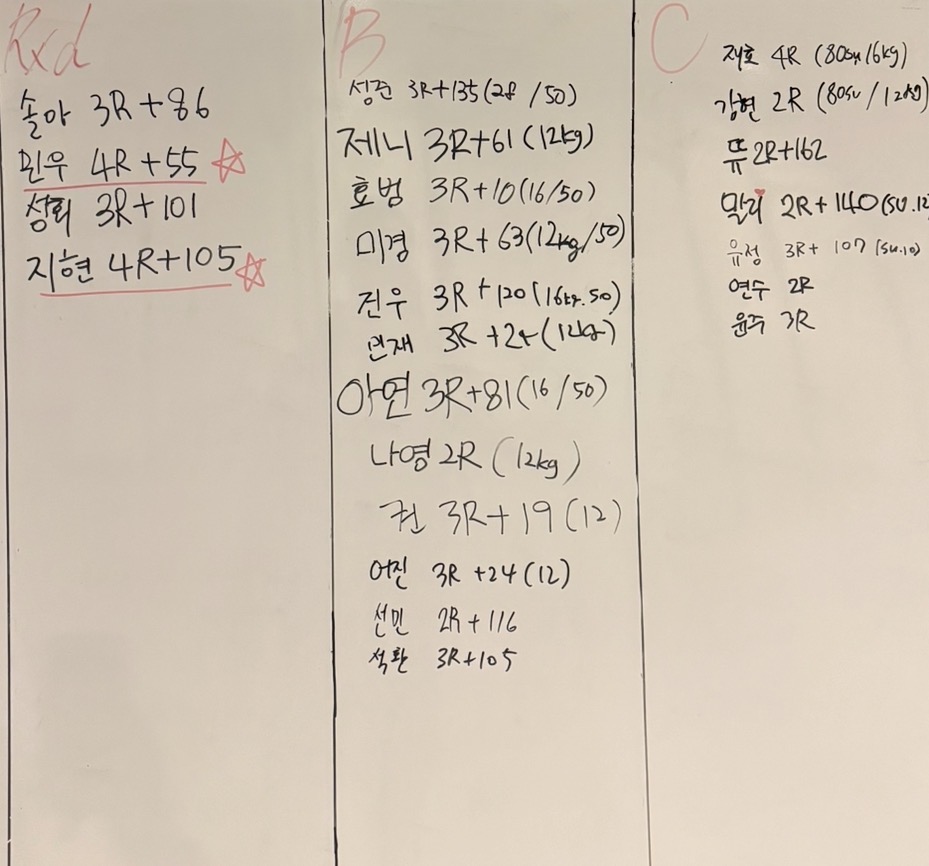 Rxd
솔아 3R+86
민우 4R+55
성희 3R+101
지현 4R+105
B
성준 3R+135(28/50)
제니 3R+61(12kg)
효범 3R+10(16/50)
미경 3R+63(12kg/50)
진우 3R+120(16kg.50)
민재 3R+2+(12kg)
아연 3R+81(16/50)
나영 2R(12kg)
권 3R+19(12)
어진 3R+24(12)
선민 2R+116
석환 3R+105
C
재호 4R(80su/6kg)
강현 2R(80su/12kg)
뜌 2R+162
말리 2R+140(SU.12
유정 3R+107(su.10)
연수 2R
윤주 3R